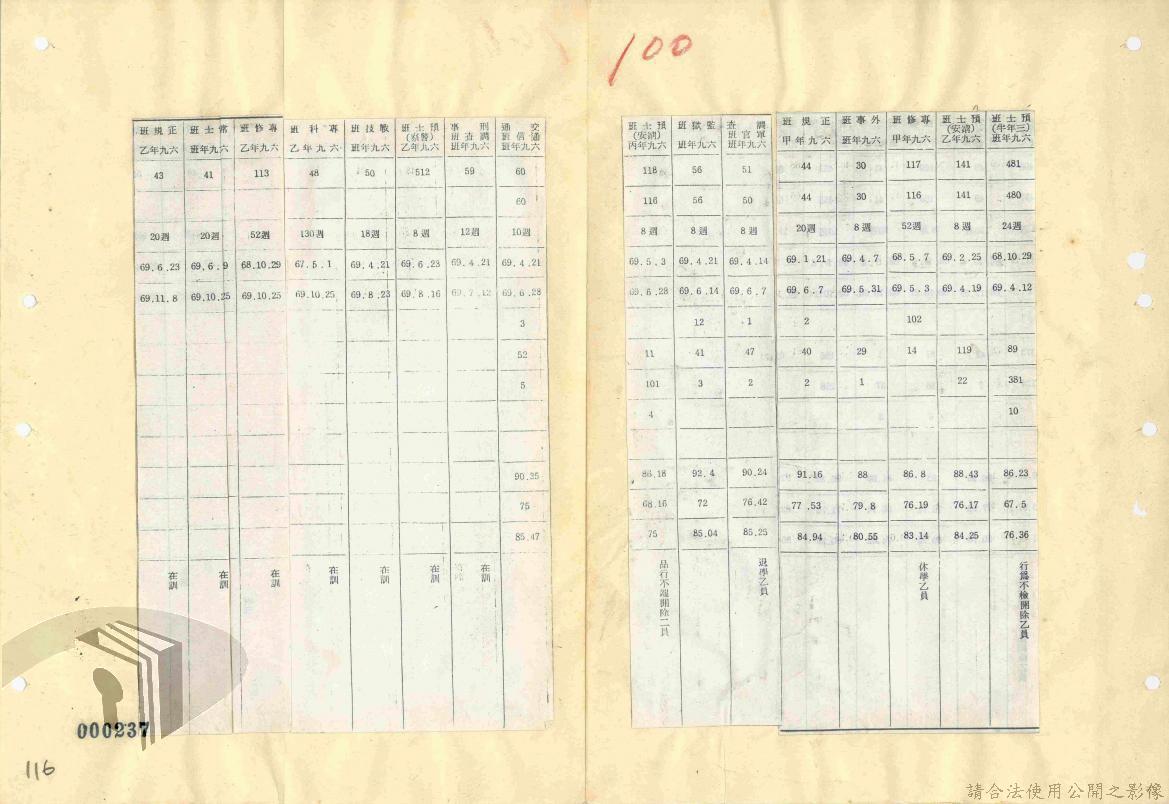 100
預士班
(三年半)
六九年班
481
480
24週
68.10.29
69.4.12
89
381
10
86.23
67.5
76.36
行為不檢開除乙員
預士班
(安清)
六九年乙
141
141
8週
69.2.25
69.4.19
119
22
88.43
76.17
84.25
專修班
六九年甲
117
116
52週
68.5.7
69.5.3
102
14
86.8
76.19
83.14
休學乙員
外事班
六九年班
30
30
8週
69.4.7
69.5.31
29
1
88
79.8
80.55
正規班
六九年甲
44
44
20週
69.1.21
69.6.7
2
40
2
91.16
77.53
84.94
調查
軍官班
六九年班
51
50
8週
69.4.14
69.6.7
1
47
2
90.24
76.42
85.25
退學乙員
監獄班
六九年班
56
56
8週
69.4.21
69.6.14
12
41
3
92.4
72
85.04
預士班
(安清)
六九年丙
118
116
8週
69.5.3
69.6.28
11
101
4
86.18
68.16
75
品行不端開除二員
交通
通信班
六九年班
60
60
10週
69.4.21
69.6.28
3
52
5
90.35
75
85.47
刑事
調查班
六九年班
59
12週
69.4.21
69.7.12
在訓
預士班
(察警)
六九年乙
512
8週
69.6.23
69.8.16
在訓
戰技班
六九年班
50
18週
69.4.21
69.8.23
在訓
專科班
六九年乙
48
130週
67.5.1
69.10.25
在訓
專修班
六九年乙
113
52週
68.10.29
69.10.25
在訓
常士班
六九年班
41
20週
69.6.9
69.10.25
在訓
正規班
六九年乙
43
20週
69.6.23
69.11.8
在訓
000237
116
請合法使用公開之影像